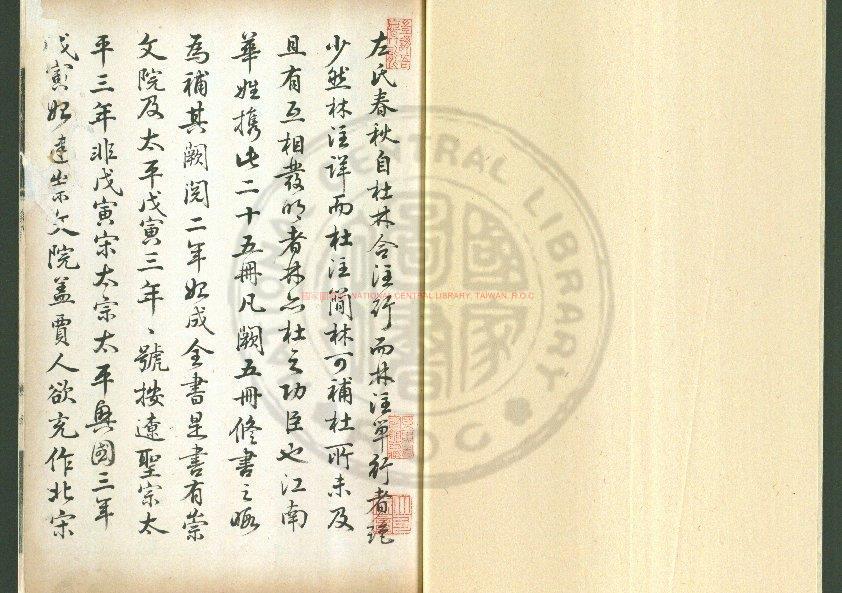 左氏春秋自杜林合注行而林注單行者
少然林注詳而杜注簡林可補杜所未及
且有互相發明者林亦杜之功臣也江南
華姓携此二十五冊凡闕五冊修書之暇
為補其闕閱二年始成全書是書有崇
文院及太平戊寅三年、號按遼聖宗太
平三年非戊寅宋太宗太平興國三年
戊寅始建崇文院蓋賈人欲充作北宋
國家圖書館 NATIONAL CENTRAL LIBRARY, TAIWAN, R.O.C
NATIONAL CENTRAL LIBRARY
R.O.C
國家圖書